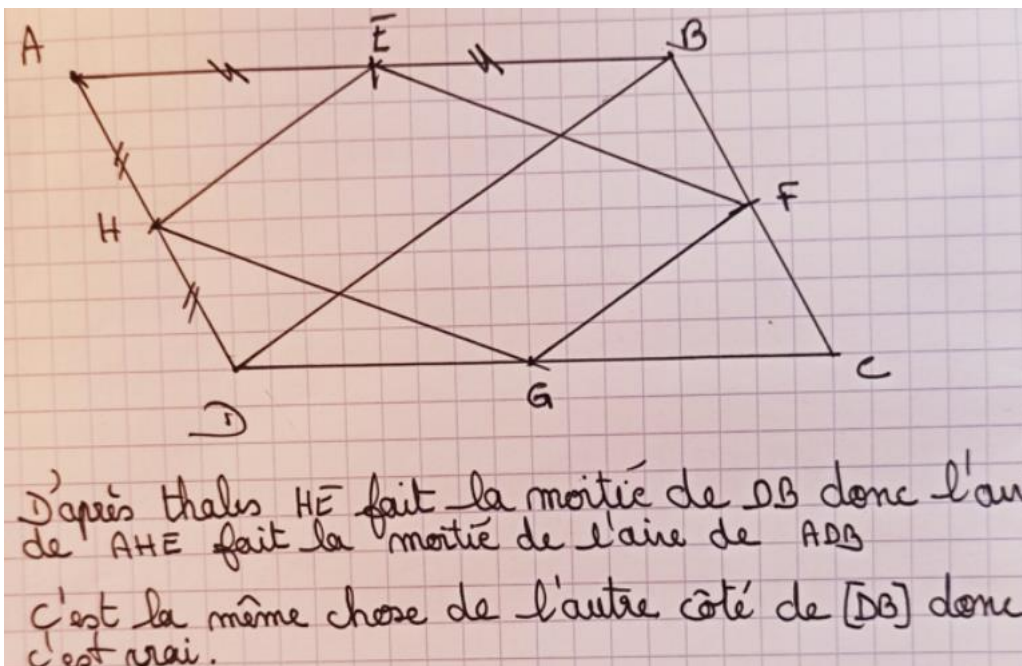 A
E
B
H
F
D
G
C
D'après thales HE fait la moitié de DB donc l'
de AHE fait la moitié de l'aire de ADB
C'est la même chose de l'autre côté de [DB] donc
c'est vrai.